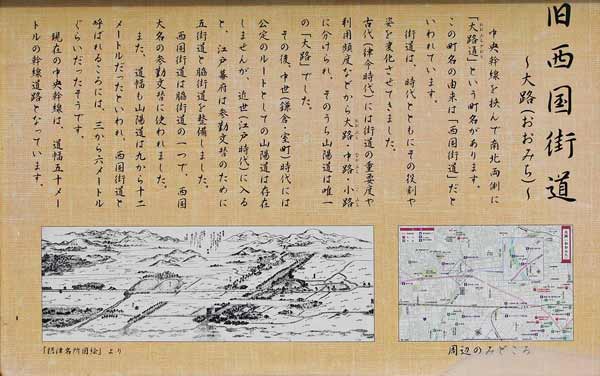 旧西国街道
～大路(おおみち)～
中央幹線を挟んで南北両側に
「大路通」という町名があります。
この町名の由来は「西国街道」だと
いわれています。
街道は、時代とともにその役割や
姿を変化させてきました。
古代(律令時代)には街道の重要度や
利用頻度などから大路・中路・小路
に分けられ、そのうち山陽道は唯一
の「大路」でした。
その後、中世(鎌倉・室町)時代には
公定のルートとしての山陽道は存在
しませんが、近世(江戸時代)に入る
と、江戸幕府は参勤交替のために
五街道と脇街道を整備しました。
西国街道は脇街道の一つで、西国
大名の参勤交替に使われました。
また、道幅も山陽道は九から十二
メートルだったといわれ、西国街道と
呼ばれるころには、三から六メートル
ぐらいだったそうです。
現在の中央幹線は、道幅五十メー
トルの幹線道路となっています。
「摂津名所図絵」より
周辺のみどころ